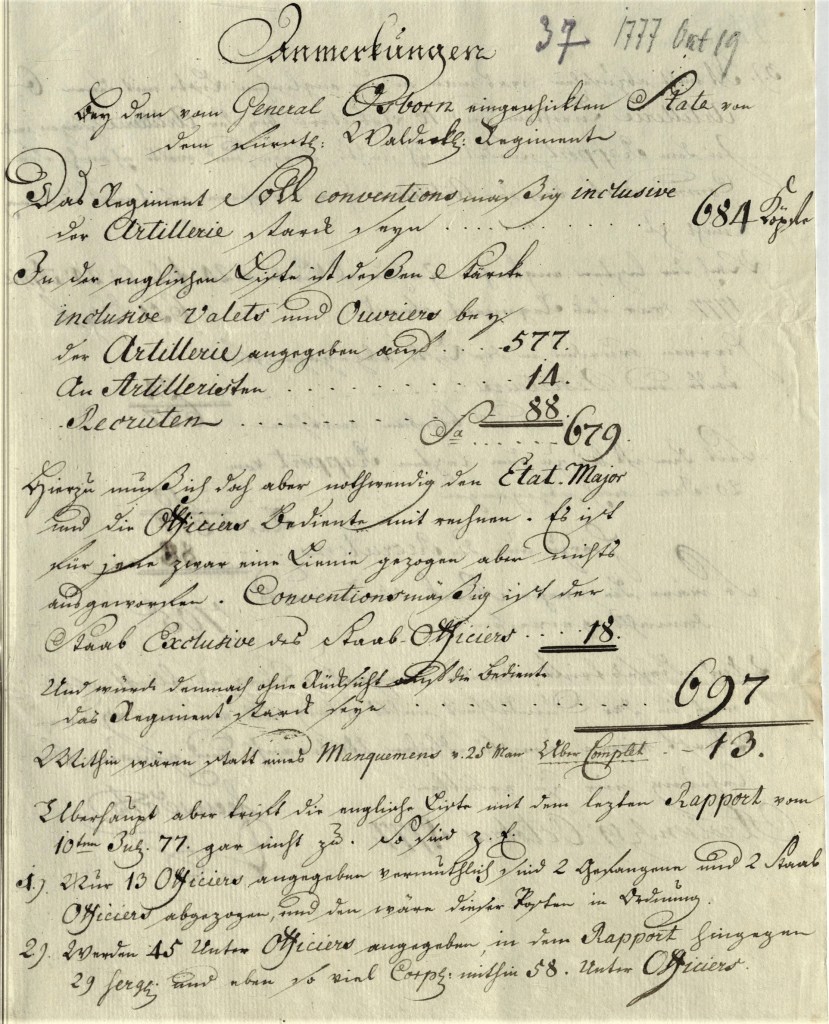 37 1777 Oct 19
Anmerkungen
Bey dem vom General Osborn eingeschickten Stata von
dem Fürstl: Waldeckl: Regimente
Das Regiment Soll conventionsmäßig inclusive
der Artillerie starck seyn . . . . . . . . . . 684 Köpfe
In der englischen Liste ist deßen Stärcke
inclusive Valets und Ouvriers bey
der Artillerie angegeben auf . . . 577.
An Artilleristen . . . . . . . . . . 14.
Recruten . . . . . . . . . . 88.
Sa . . . . . . 679.
Hierzu muß ich doch aber nothwendig den Etat-Major
und die Officiers Bediente mit rechnen. Es ist
für jene zwar eine Linie gezogen aber nichts
ausgeworfen. Conventionsmäßig ist der
Staab Exclusive des Staab-Officiers . . . . 18.
Und würde demnach ohne Rücksicht auf die Bediente
das Regiment starck seyn . . . . . . . . . . 697
Mithin wären statt eines Manquemens v. 25 Man Uber Complet . . 13.
Uberhaupt aber trift die englische Liste mit dem lezten Rapport vom
10ten Jul. 77. gar nicht zu. So sind z. E.
1.) Nur 13 Officiers angegeben vermuthlich sind 2 Gefangene und 2 Staab
Officiers abgezogen, und den wäre dieser Posten in Ordnung.
2). Werden 45 Unter Officiers angegeben, in dem Rapport hingegen
29 Sergt: und eben so viel Corpl: mithin 58. Unter Officiers.